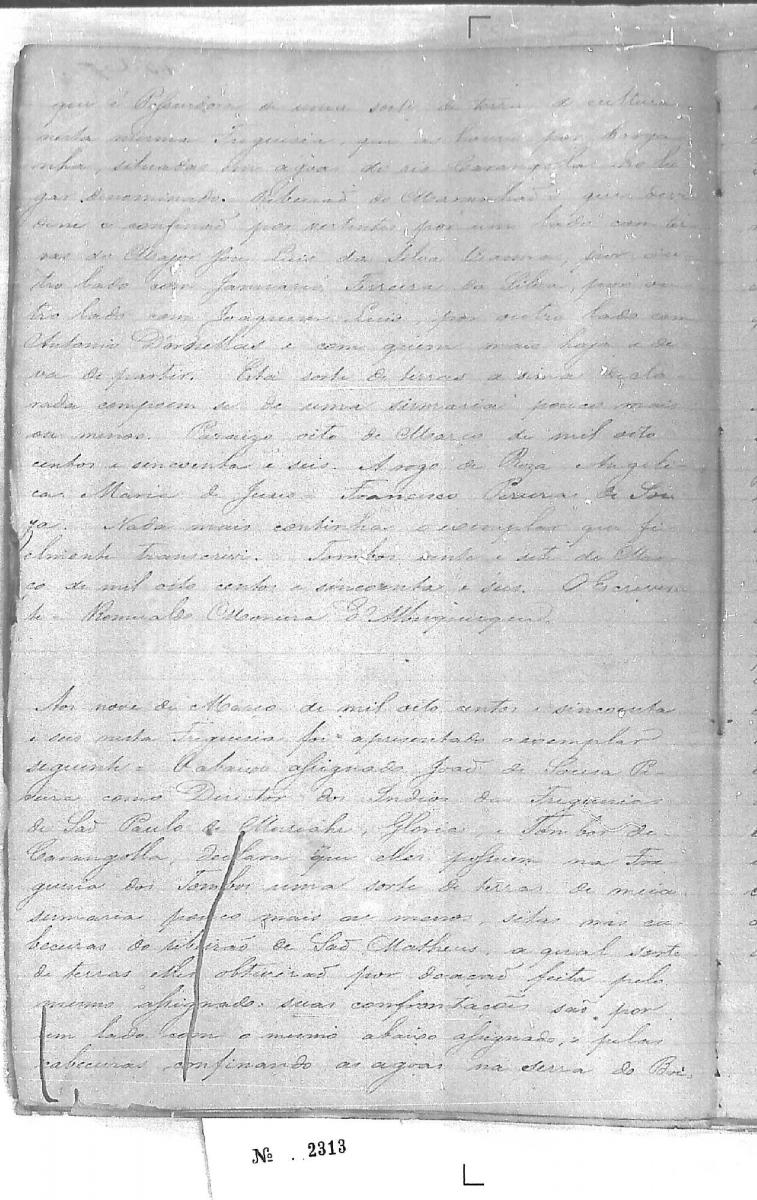 que é Possuidora de uma sorte de terra de cultura
nesta mesma Freguesia, que as houve por
situadas em agoas do rio Carangolla no lu
gar denominado Ribeirão do Maranhaõ que
e confinaõ por vertentes por um lado com ter
ras do Major Jose Luis da Silva Vianna, por ou
tro lado com Januario Ferreira da Silva, por ou
tro lado com Joaquim Luis, por outro lado com
Antonio Dornellas e com quem mais haja e de
va de partir. Esta sorte de terras a sima decla
rada compoem se de uma sismaria pouco mais
ou menos. Paraizo oito de Março de mil oito
centos e sincoenta e seis. A rogo de Roza Angeli
ca Maria de Jesus = Francisco Pereira de Sou
za. Nada mais continha o exemplar que fi
elmente transcrevi. Tombos vinte e sete de Mar
ço de mil oito centos e sincoenta e seis. O Escreven
te = Romualdo Moreira d'Albuquerque.
Aos nove de Março de mil oito centos e sincoenta
e seis nesta Freguesia foi apresentado o exemplar
seguinte = O abaixo assignado João de Sousa Pe
reira como Director dos Indios das Freguesias
de Saõ Paulo do Muriahe, Gloria, e Tombos de
Carangolla, declara que elles possuem na Fre
guesia dos Tombos uma sorte de terras de meia
sismaria pouco mais ou menos, sitas nas ca
beceiras do ribeiraõ de Saõ Matheus, a qual sorte
de terras elles obtiveraõ por doacaõ feita pelo
mesmo assignado. suas confrontações saõ por
um lado com o mesmo abaixo assignado, e pelas
cabeceiras confinando as agoas na serra do Boi.
Nº 2313